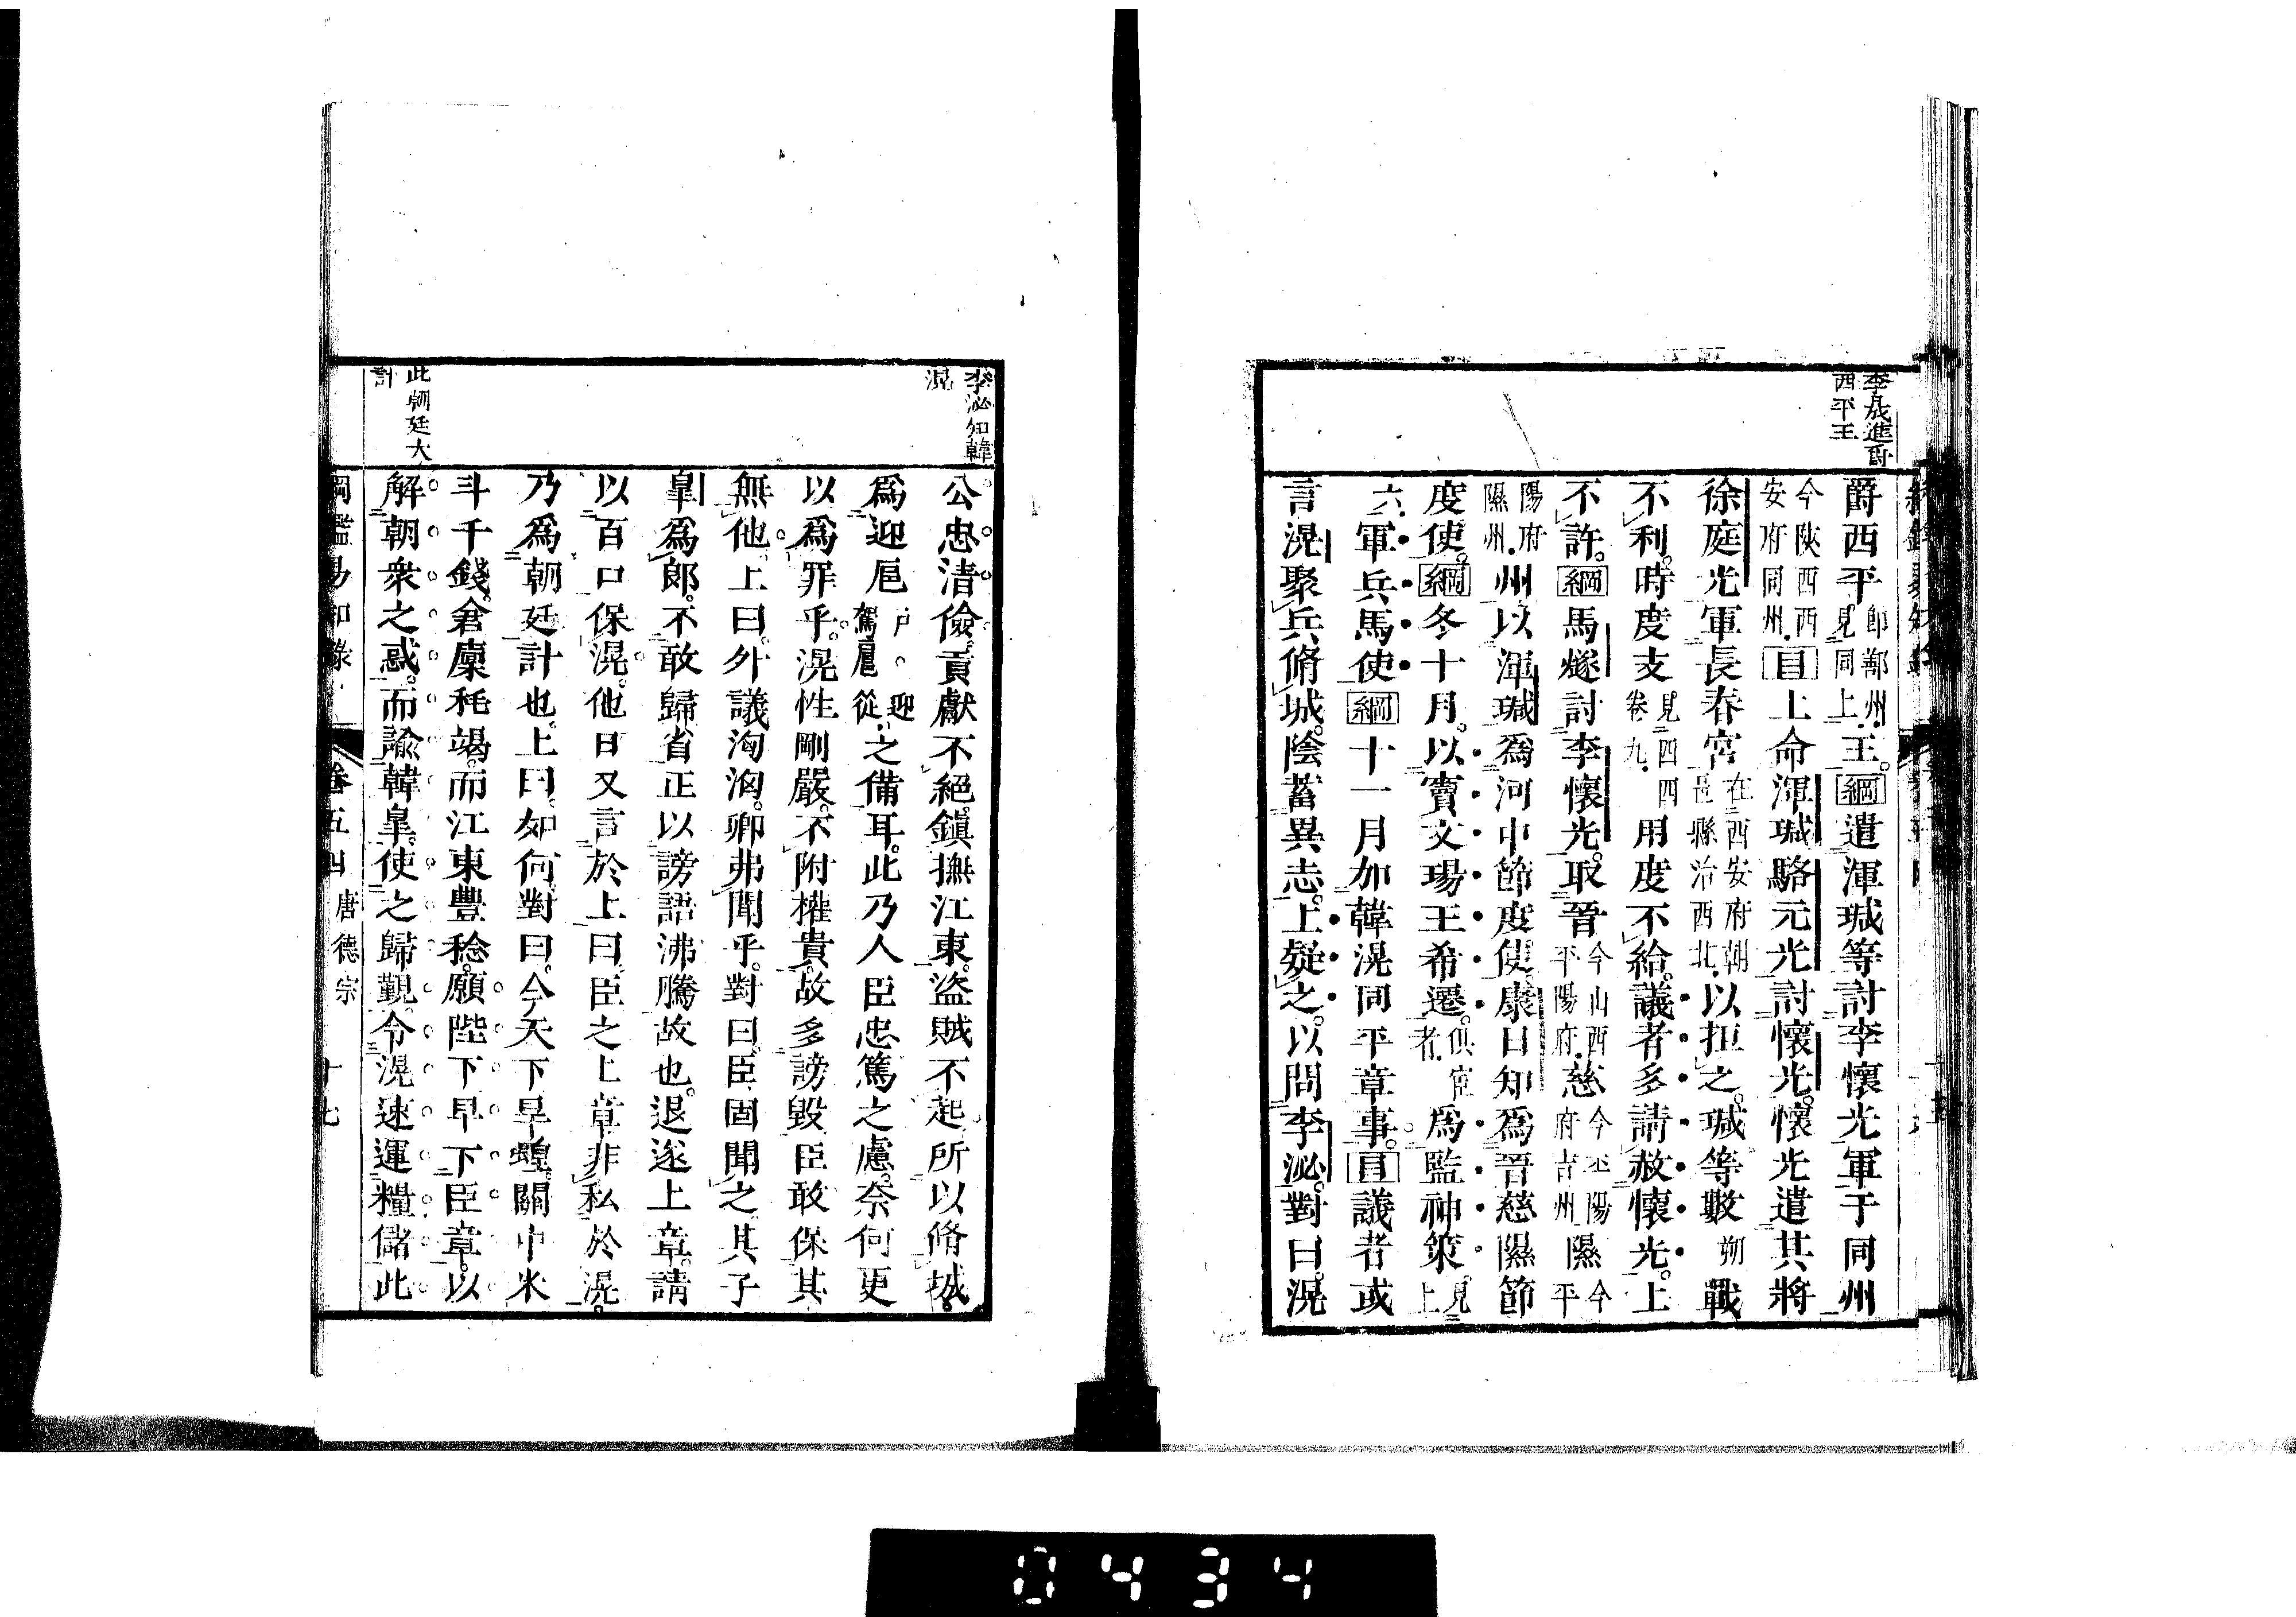 李晟進爵
西平王
爵西平卽鄯州見同上王。綱遣渾瑊等討李懷光軍于同州
今陝西西安府同州目上命渾瑊駱元光討懷光。懷光遣其將
徐庭光軍長春宮在西安府朝邑縣治西北以拒之。瑊等數朔戰
不利。時度支見四四卷九用度不給。議者多請赦懷光。上
不許。綱馬燧討李懷光。取晉今山西平陽府慈今平陽府吉州隰今平
陽府隰州州以渾瑊爲河中節度使。康日知爲晉慈隰節
度使。綱冬十月。以竇文瑒王希遷。俱宦者爲監神策。見上
六軍兵馬使綱十一月加韓滉同平章事。目議者或
言滉聚兵脩城。陰蓄異志。上疑之。以問李泌。對曰。滉
李泌知韓
滉
公忠清儉。貢獻不絕。鎭撫江東。盜賊不起。所以脩城。
爲迎扈戶。迎駕扈從之備耳。此乃人臣忠篤之慮。奈何更
以爲罪乎。滉性剛嚴。不附權貴。故多謗毀。臣敢保其
無他。上曰。外議洶洶。卿弗聞乎。對曰。臣固聞之。其子
皐爲郎。不敢歸省。正以謗語沸騰故也。退遂上章。請
以百口保滉。他日又言於上曰。臣之上章。非私於滉。
乃爲朝廷計也。上曰。如何。對曰。今天下旱蝗。關中米
斗千錢。倉廩耗竭。而江東豐稔。願陛下早下臣章。以
解朝衆之惑。而諭韓皐。使之歸覲。令滉速運糧儲。此
此朝廷大
計
綱鑑易知錄 卷五四 唐德宗 十七
0434